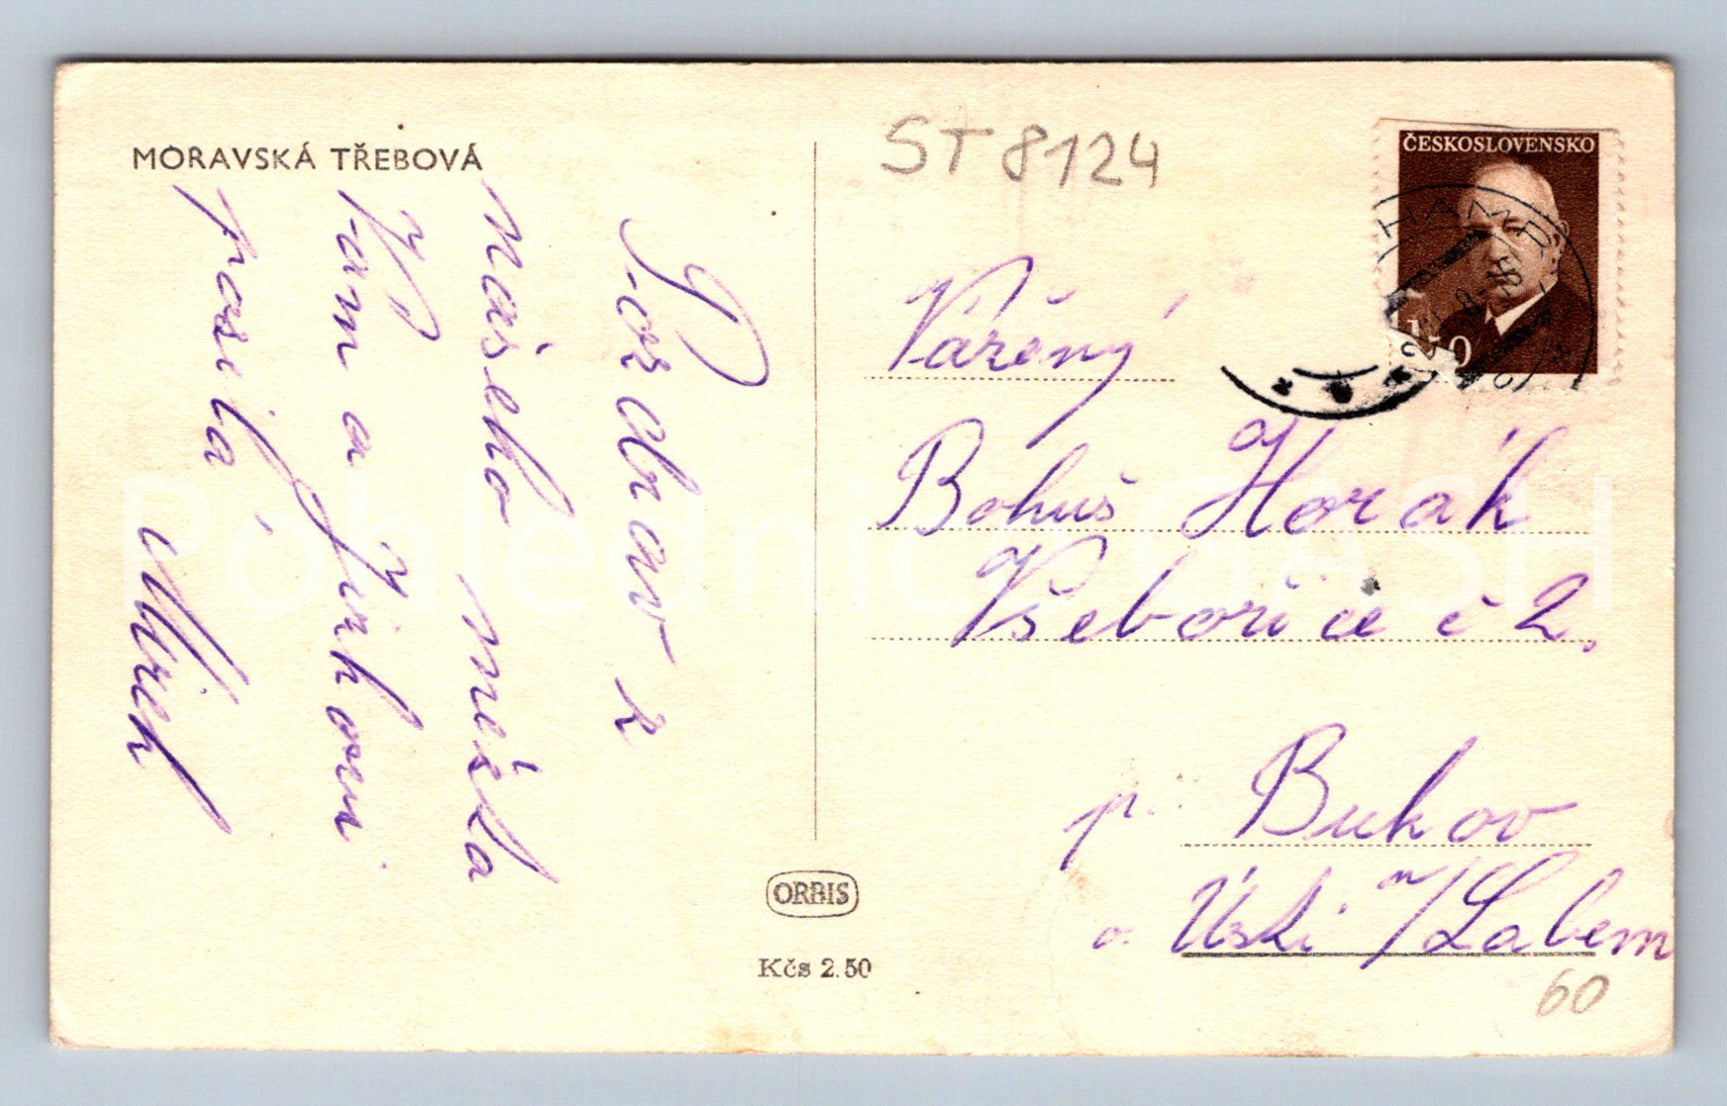 MORAVSKÁ TŘEBOVÁ
Pozdrav z
našeho města
Vám a Jirkovi
posílá
ST 8124
ČESKOSLOVENSKO
Vážený
Bohuš Horák
Všebořice č 2.
p. Bukov
o. Ústí n/Labem
60
ORBIS
Kčs 2.50
Pohlednice SH